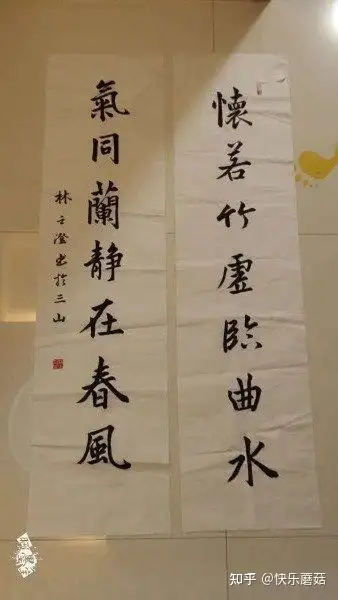 懷若竹虛臨曲水
氣同蘭靜在春風
林士澄書於三山
知乎 @快乐蘑菇